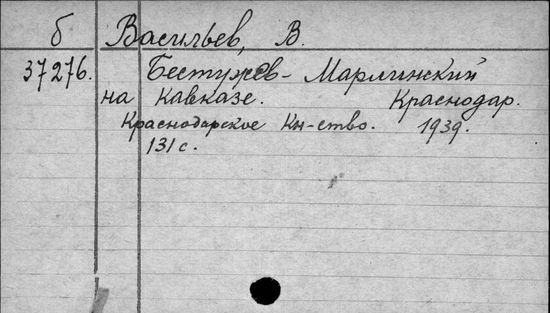 б Васильев, В.
37276. Бестужев-Марлинский
на Кавказе. Краснодар.
Краснодарское Кн-ство. 1939.
131 с.